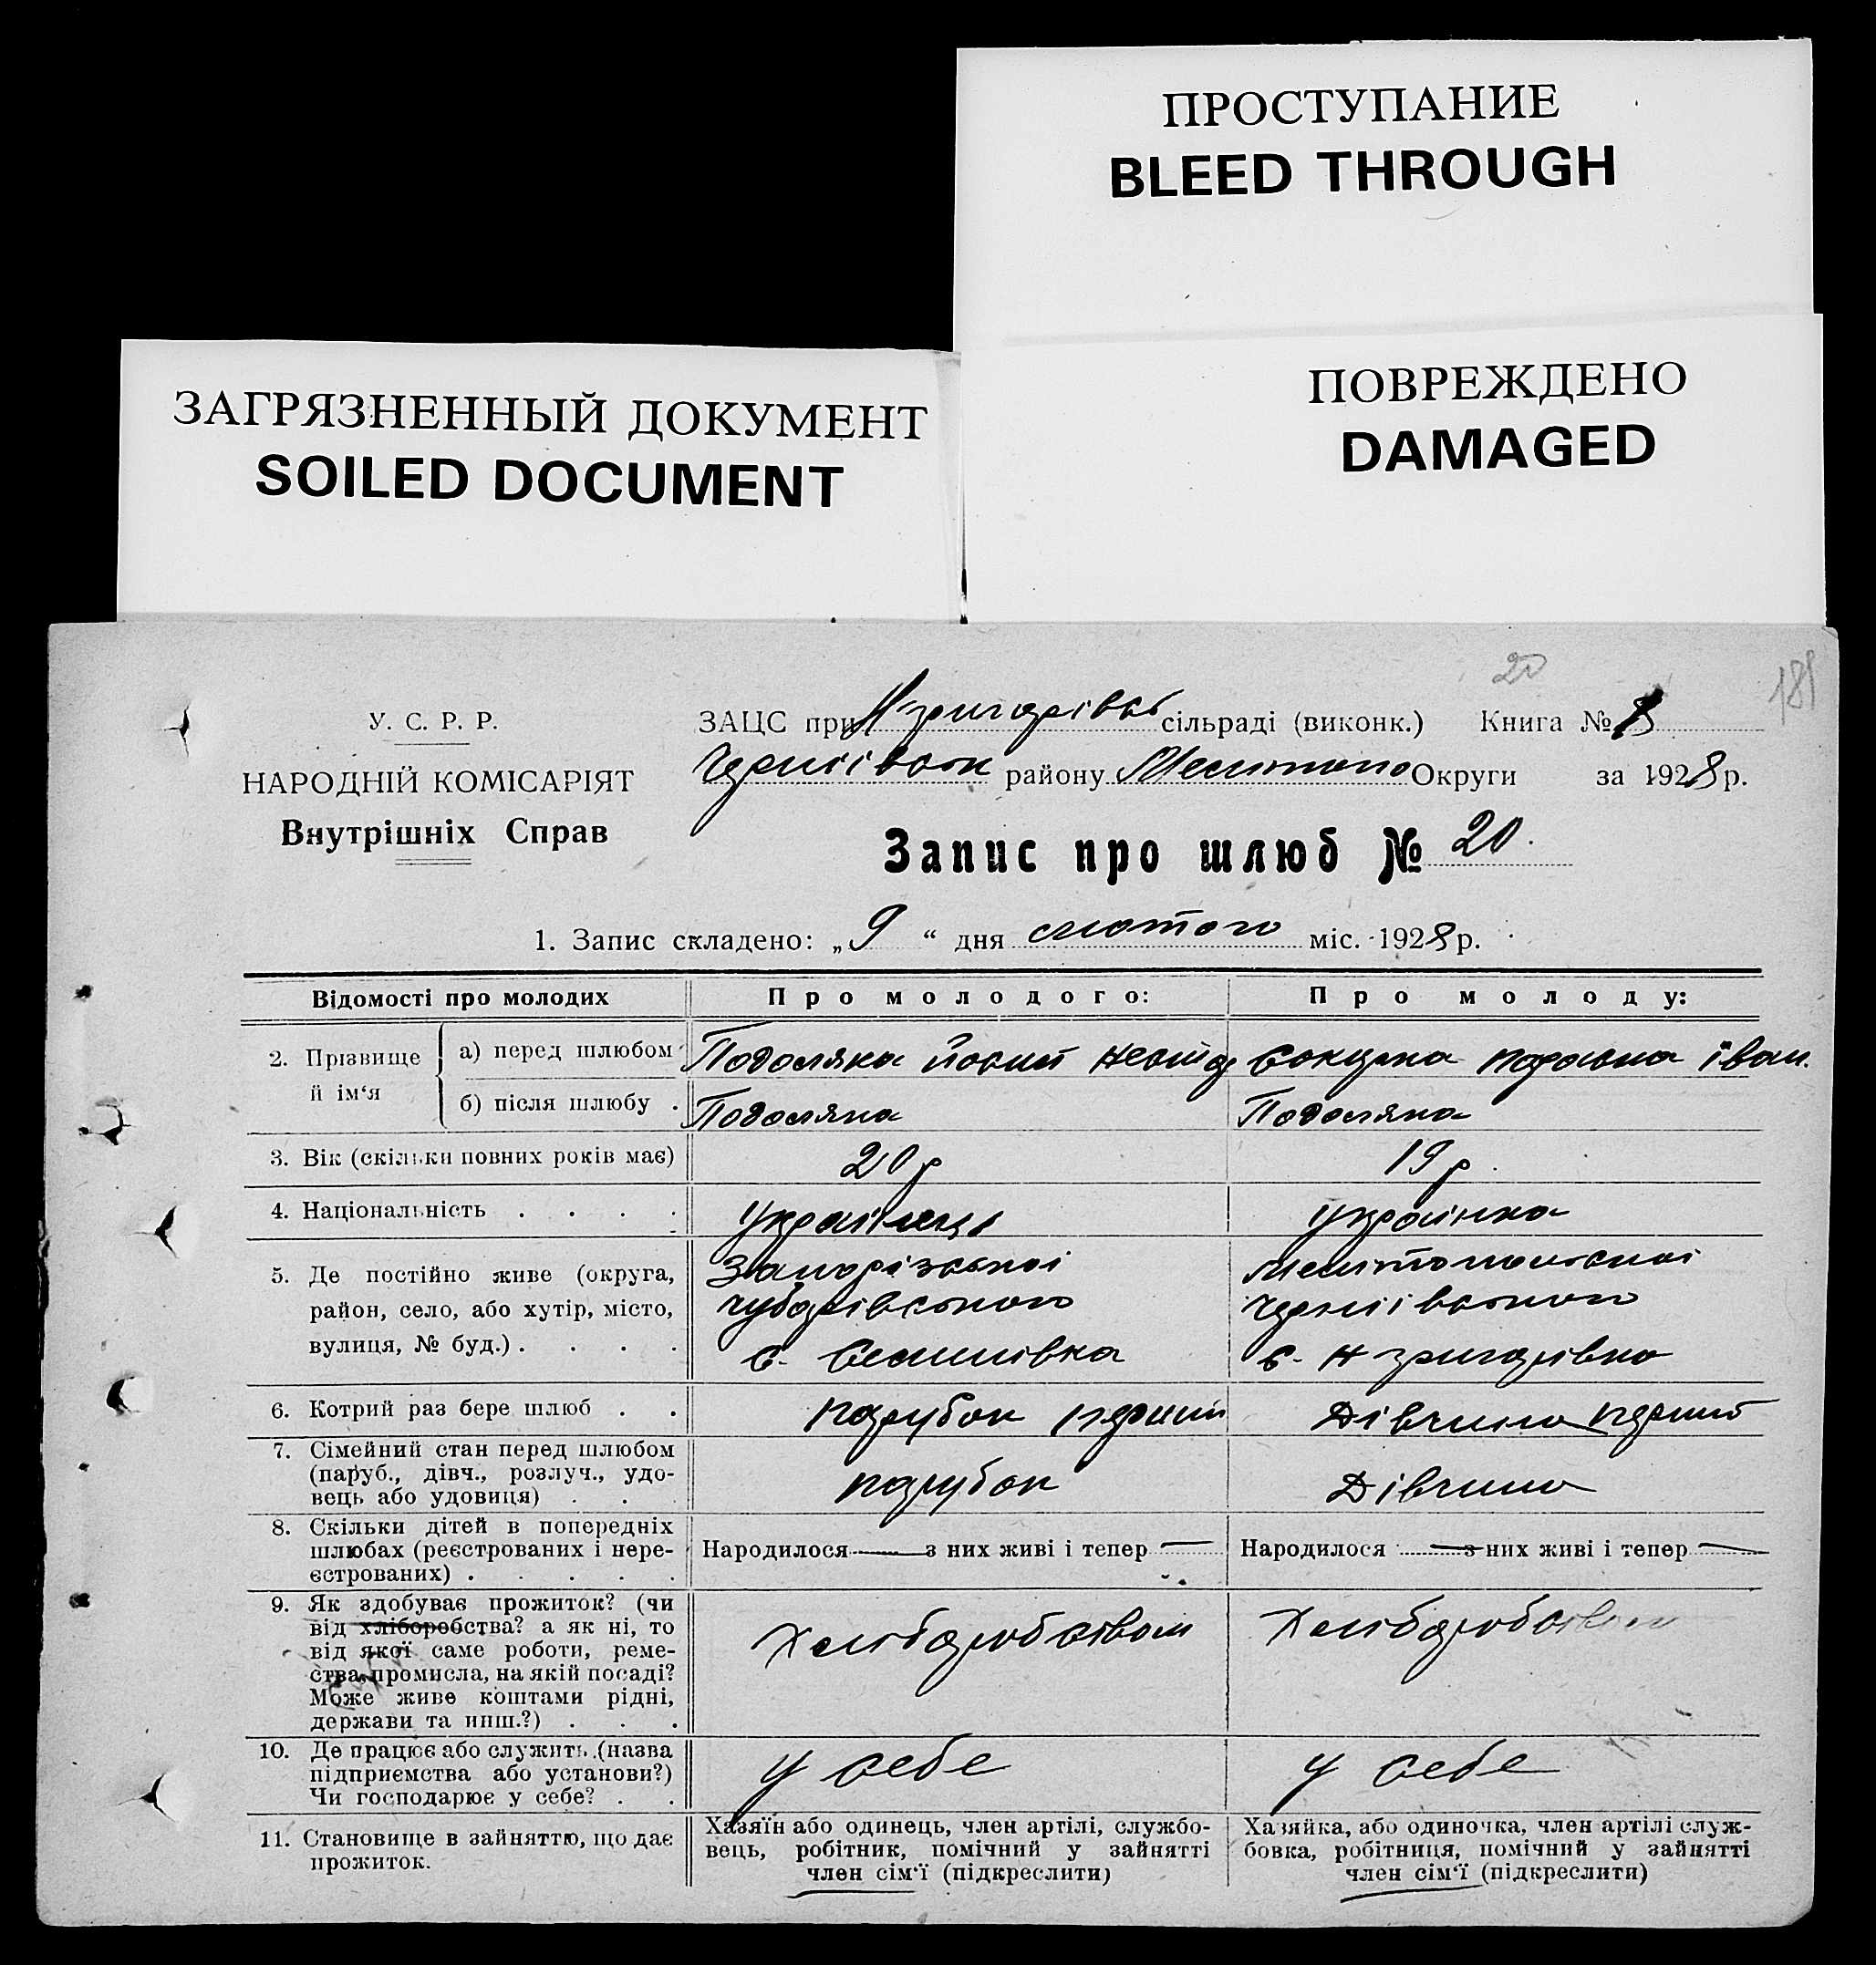 ПРОСТУПАНИЕ
BLEED THROUGH
ПОВРЕЖДЕНО
DAMAGED
ЗАГРЯЗНЕННЫЙ ДОКУМЕНТ
SOILED DOCUMENT
20
У. С. Р. Р.
НАРОДНІЙ КОМІСАРІЯТ
Внутрішніх Справ
ЗАЦС при сільраді (виконк.) Книга №
району Мелітопо Округи за 1928 р.
Запис про шлюб № 20.
1. Запис складено: „ 9 “ дня лютого міс. 1928 р.
Відомості про молодих
Про молодого:
Про молоду:
2. Прізвище й ім‘я
а) перед шлюбом
Подоляка Йосип
Іван.
б) після шлюбу .
Подоляка
Подоляка
3. Вік (скільки повних років має)
20 р
19 р.
4. Національність . . . .
Українець
Українка
5. Де постійно живе (округа,
район, село, або хутір, місто,
вулиця, № буд.) . . . .
Запорізької
Чубарівського
с. Семенівка
Мелітопольської
Чернігівського
с. Н григорівка
6. Котрий раз бере шлюб . .
Парубок перший
Дівчина перший
7. Сімейний стан перед шлюбом
(паруб., дівч., розлуч., удо-
вець або удовиця) . . .
парубок
Дівчина
8. Скільки дітей в попередніх
шлюбах (реєстрованих і нере-
єстрованих) . . . . .
Народилося — з них живі і тепер —
Народилося — з них живі і тепер —
9. Як здобуває прожиток? (чи
від хліборобства? а як ні, то
від якої саме роботи, реме-
ства, промисла, на якій посаді?
Може живе коштами рідні,
держави та инш.?) . . .
Хліборобством
Хліборобством
10. Де працює або служить (назва
підприємства або установи?)
Чи господарює у себе? . .
У себе
У себе
11. Становище в зайняттю, що дає
прожиток.
Хазяїн або одинець, член артілі, службо-
вець, робітник, помічний у зайнятті
член сім‘ї (підкреслити)
Хазяйка, або одиночка, член артілі служ-
бовка, робітниця, помічний у зайнятті
член сім‘ї (підкреслити)